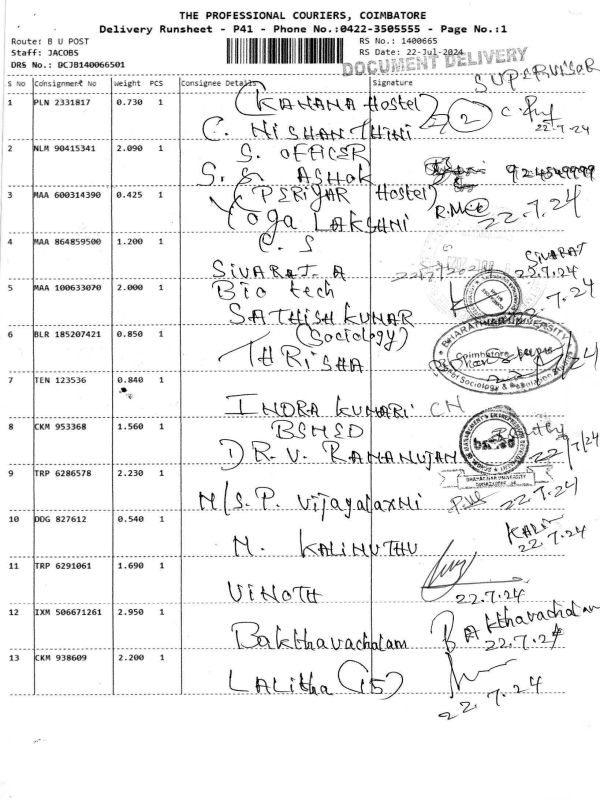 THE PROFESSIONAL COURIERS, COIMBATORE
Delivery Runsheet - P41 - Phone No.:0422-3505555 - Page No.:1
Route: B U POST
Staff: JACOBS
DRS No.: DCJB140066501
RS No.: 1400665
RS Date: 22-Jul-2024
DOCUMENT DELIVERY
S No Consignment No Weight PCS Consignee Details Signature
SUPERVISOR
1 PLN 2331817 0.730 1 (KANANA Hostel)
C. NISHANTHINI 2 22.7.24
2 NLM 90415341 2.090 1 S. OFFICER
S. S. ASHOK
3 MAA 600314390 0.425 1 (PERIYAR Hostel)
Yoga LAKSHNI 22.7.24
4 MAA 864859500 1.200 1 C. S
SIVARAJ. A SIVARAJ
22.7.24
5 MAA 100633070 2.000 1 Bio tech
SATHISH KUMAR
6 BLR 185207421 0.850 1 (Sociology)
THRISHA
BHARATHIAR UNIVERSITY
Coimbatore
7 TEN 123536 0.840 1
INDRA KUMARI CN
8 CKM 953368 1.560 1 BSMED
DR. V. RAMANUJAM 22/7/24
BHARATHIAR UNIVERSITY
9 TRP 6286578 2.230 1
M/S. P. Vijayalaxmi 22.7.24
10 DDG 827612 0.540 1
M. KALIMUTHU 22.7.24
11 TRP 6291061 1.690 1
VINOTH 22.7.24
12 IXM 506671261 2.950 1
Bakthavachalam Bakthavachalam
22.7.24
13 CKM 938609 2.200 1
LALitha (15) 22.7.24